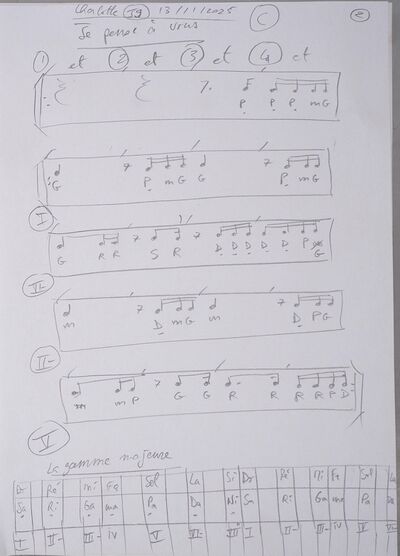 Charlotte 39 13/11/2025 C e
Je pense à vous
1 et 2 et 3 et 4 et
P P P m G
G P m G G P m G
I
G R R S R D D D D D P G
VI-
m D m G m D P G
III-
m m P G G R R R R P D
V
La gamme majeure
Do Ré Mi Fa Sol La Si Do Ré Mi Fa Sol La
Sa Ri Ga ma Pa Da Ni Sa Ri Ga ma Pa Da
I II- III- IV V VI- VII I II- III- IV V VI-